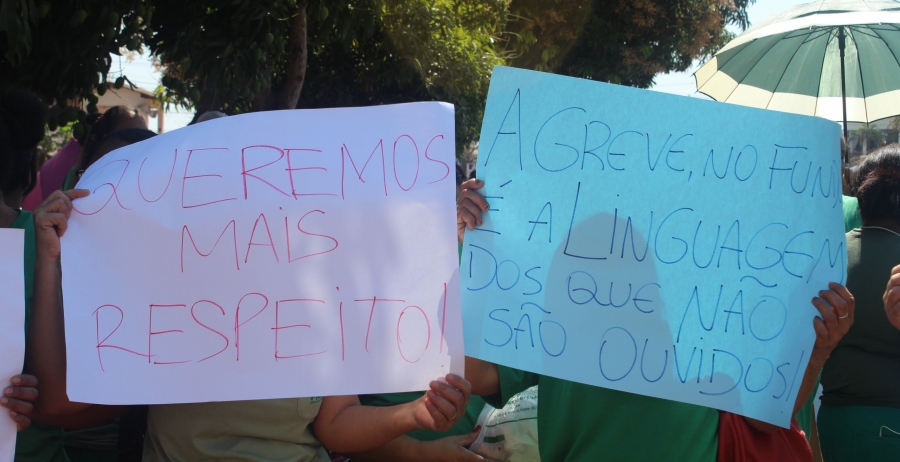 QUEREMOS
MAIS
RESPEITO!
A GREVE, NO FUNDO,
É A LINGUAGEM
DOS QUE NÃO
SÃO OUVIDOS!